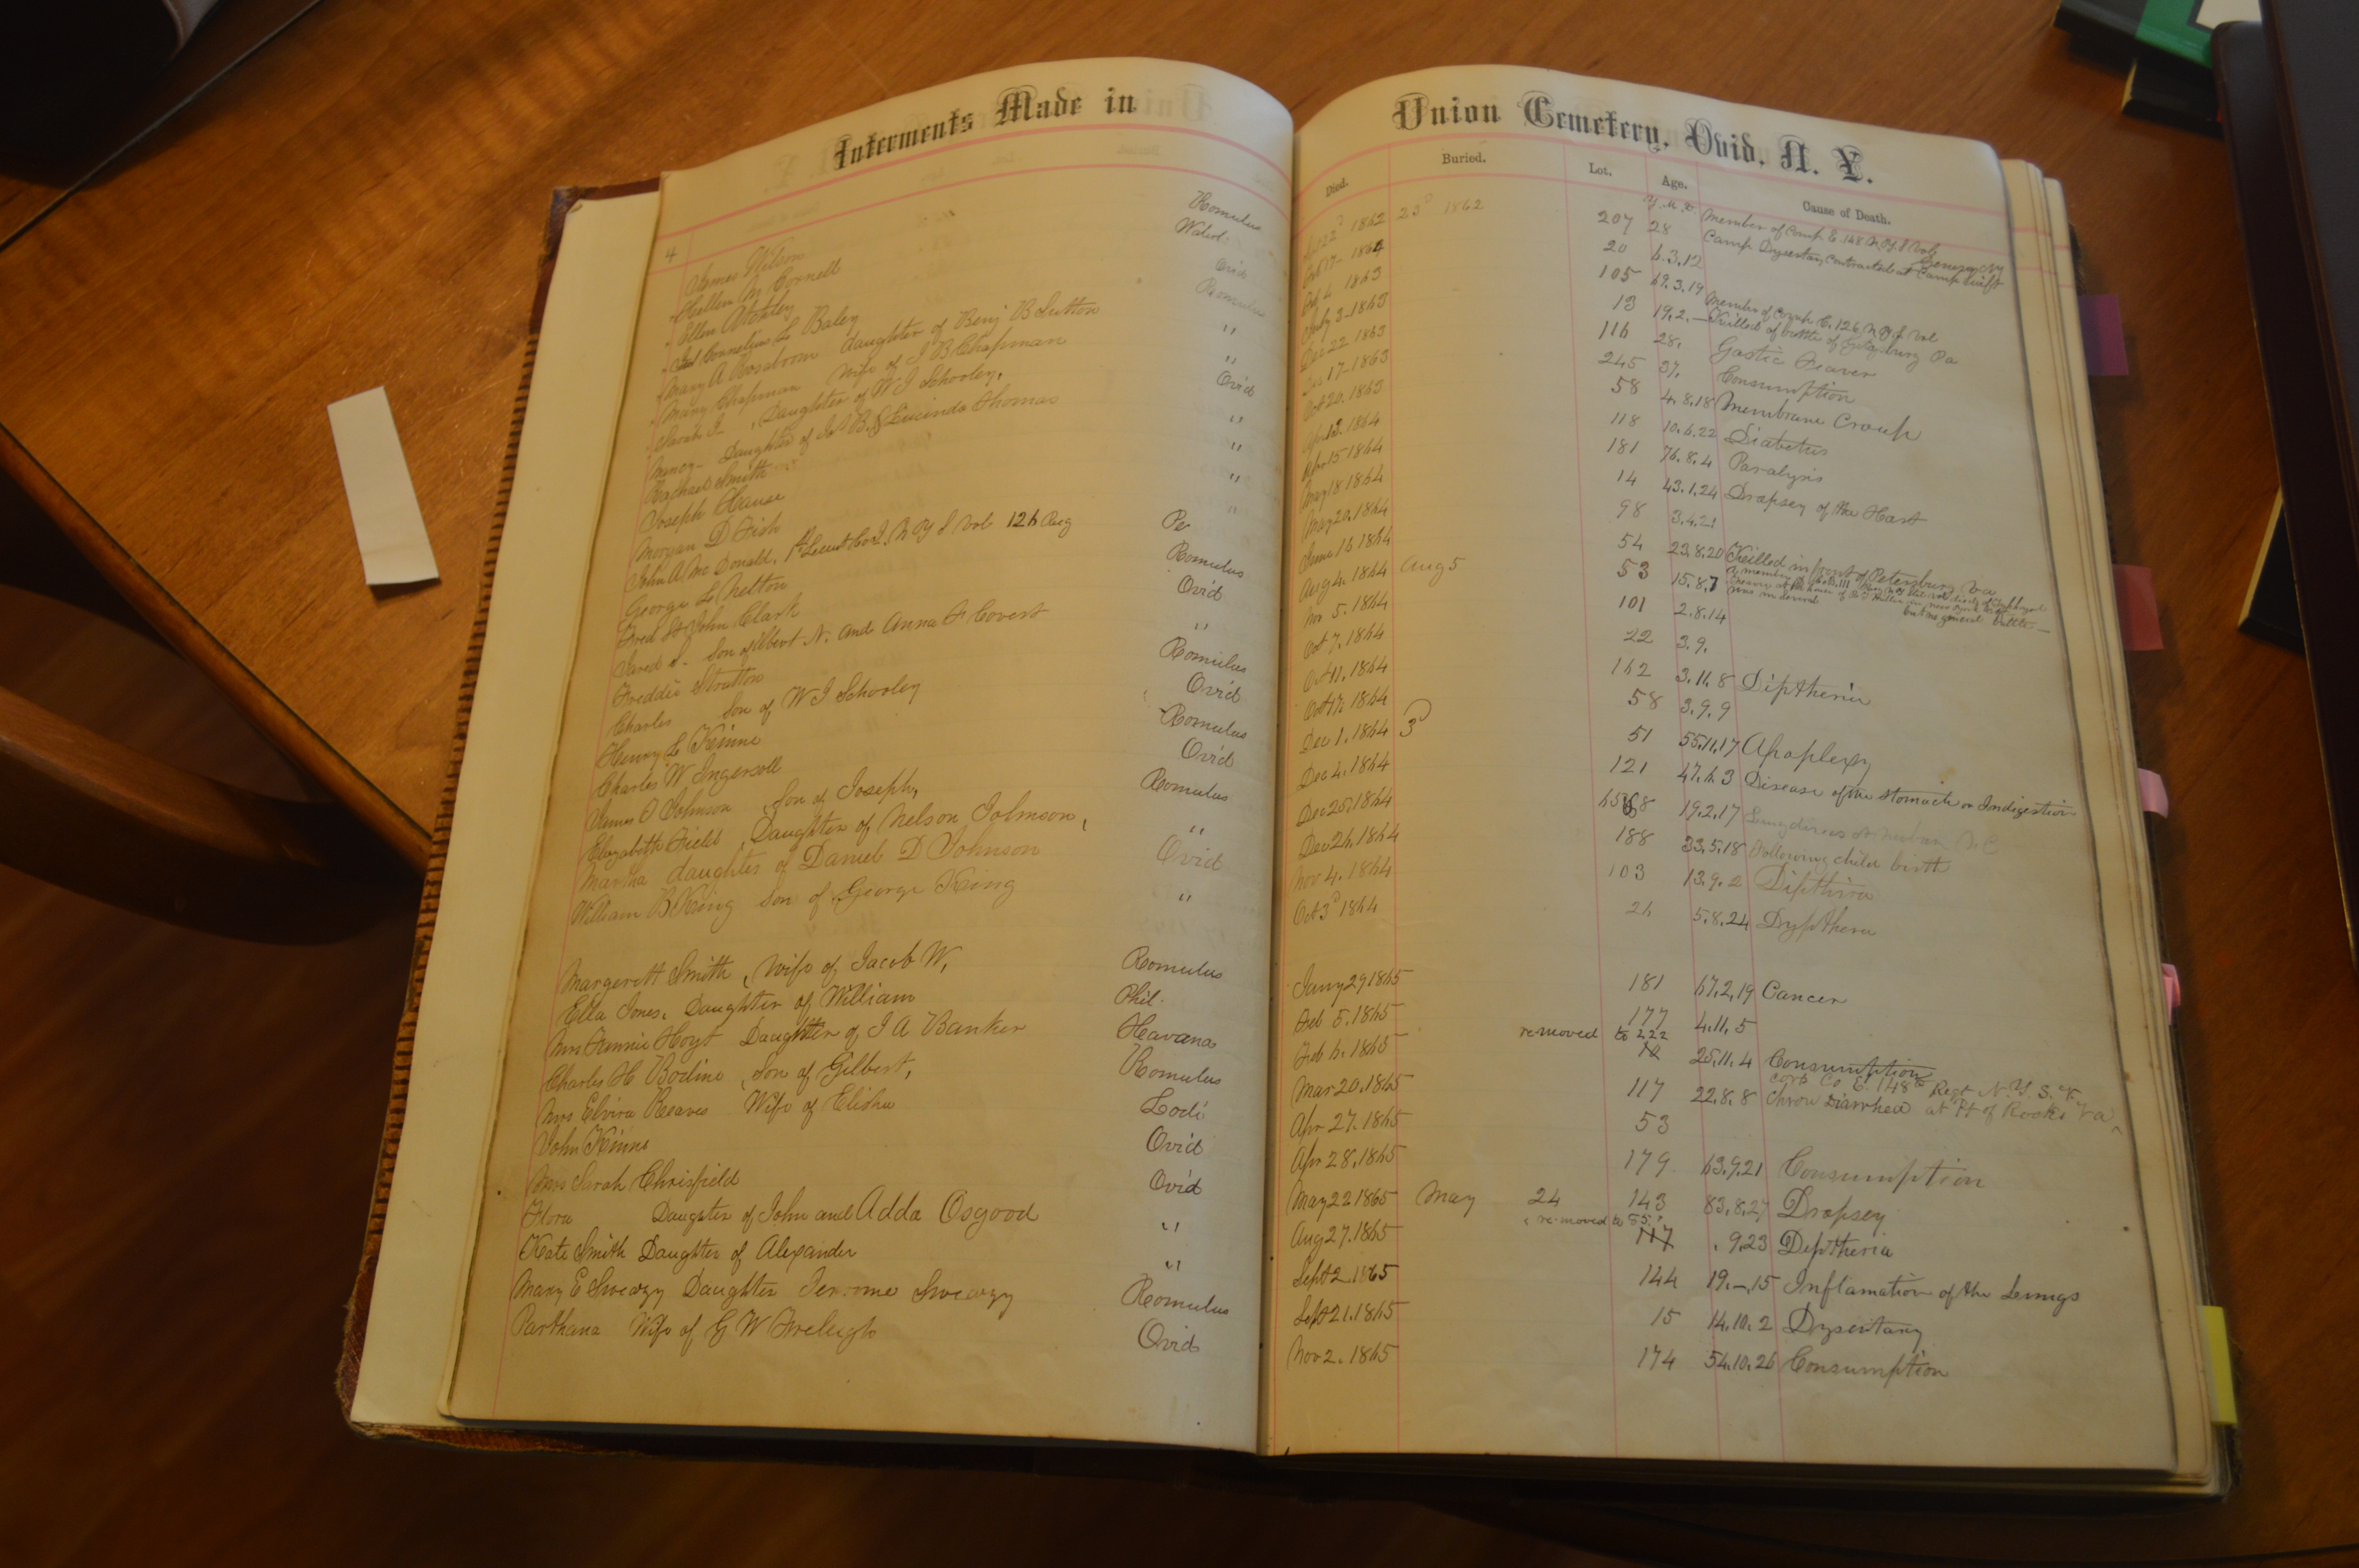 Interments Made in
Union Cemetery, Ovid, N. Y.
Died. Buried. Lot. Age. Cause of Death.
4 Y. M. D.
James Wilson Romulus 22d 1862 23d 1862 207 28 Member of Comp E. 148 N Y S Vol
Camp Dysentary contracted at Camp Swift Geneva NY
Hellen M Cornell 1864 20 6.3.12
Ellen Ovid 4 1863 105 69.3.19
Cornelius L Baley Romulus July 3-1863 13 19.2.— Member of Comp C. 126 N Y S Vol
Killed at battle of Gettysburg Pa
Mary A Rosabroom daughter of Benj B Sutton " Dec 22 1863 116 28. Gastic Feaver
Mary Chapman Wife of J B Chapman " 17-1863 245 37. Consumption
Sarah J. Daughter of W J Schooley, Ovid Oct 20. 1863 58 4.8.18 Membrane Croup
Nancy- Daughter of B. & Lucinda Thomas " 12. 1864 118 10.6.22 Diabetus
Rachael Smith " 15 1864 181 76.8.4 Paralysis
Joseph Hause " May 18 1864 14 43.1.24 Dropsey of the Hart
Morgan D Fish " May 20. 1864 98 3.4.21
John A Mc Donald, 1st Lieut Co I. N Y S Vol 126 Reg June 16 1864 54 23.8.20 Killed in front of Petersburg Va
George L Nelton Romulus Aug 4. 1864 Aug 5 53 15.8.7
was in several but no general battle.—
Fred St John Clark Ovid Nov 5. 1864 101 2.8.14
Jared S. Son of Albert N. and Anna F Covert " Oct 7. 1864 22 3.9.
Freddie Stratton Romulus Oct 11. 1864 162 3.11.8 Diptheria
Charles Son of W J Schooley Ovid Oct 17. 1864 58 3.9.9
Henry L Kinne Romulus Dec 1. 1864 3d 51 55.11.17 Apoplexy
Charles W Ingersoll Ovid Dec 4. 1864 121 47.6.3 Disease of the Stomach or Indigestion
James O Johnson, Son of Joseph, Romulus Dec 25. 1864 68 19.2.17
Elizabeth Field, Daughter of Nelson Johnson, " Dec 26. 1864 188 33.5.18 Following child birth
Martha daughter of Daniel D Johnson Ovid Nov 4. 1864 103 13.9.2 Dipthira
William B King Son of George King " Oct 3d 1864 26 5.8.24 Dyptheria
Margerett Smith, Wife of Jacob W, Romulus Jany 29 1865 181 67.2.19 Cancer
Ella Jones. Daughter of William Phil. Feb 5. 1865 177 4.11.5
removed to 222
Mrs Fannie Hoyt Daughter of J A Banker Havana Feb 6. 1865 25.11.4 Consumption
Charles H Bodine, Son of Gilbert, Romulus Mar 20. 1865 117 22.8.8 Corp Co E. 148th Regt N.Y.S.V.
Chron Diarrhea at Pt of Rocks Va
Mrs Elvira Reaves Wife of Elisha Lodi Apr 27. 1865 53
John Kinne Ovid Apr 28. 1865 179 63.9.21 Consumption
Mrs Sarah Chrisfield Ovid May 22 1865 May 24 143 83.8.27 Dropsey
removed to 55.
Flora Daugter of John and Adda Osgood " Aug 27. 1865 117 .9.23 Deptheria
Kate Smith Daughter of Alexander " Sept 2. 1865 144 19.—.15 Inflamation of the Lungs
Mary E Sweazy Daughter Jerome Sweazy Romulus Sept 21. 1865 15 14.10.2 Dysentary
Parthana Wife of G W Freleigh Ovid Nov 2. 1865 174 54.10.26 Consumption